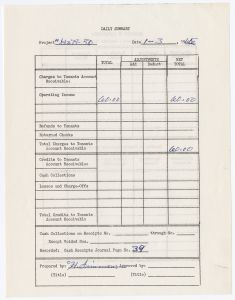 DAILY SUMMARY
Project
Date 1-3, 1966
ADJUSTMENTS
TOTAL Add Deduct NET TOTAL
Charges to Tenants Account Receivable:
Operating Income 60.00 60.00
Refunds to Tenants
Returned Checks
Total Charges to Tenants Account Receivable 60.00
Credits to Tenants Account Receivable:
Cash Collections
Losses and Charge-Offs
Total Credits to Tenants Account Receivable
Cash Collections on Receipts No. through No.
Except Voided Nos.
Recorded: Cash Receipts Journal Page No. 39
Prepared by: Approved by:
(Title) (Title)